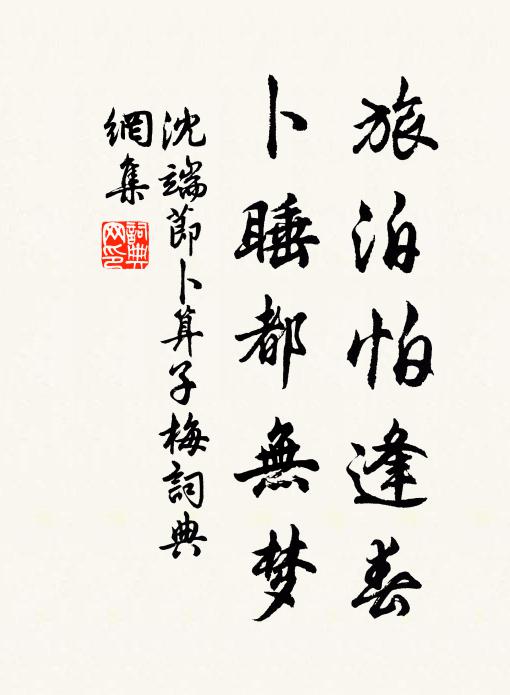 旅泊怕逢春
卜睡都無梦
沈端節卜算子梅詞典
網集
詞典网印